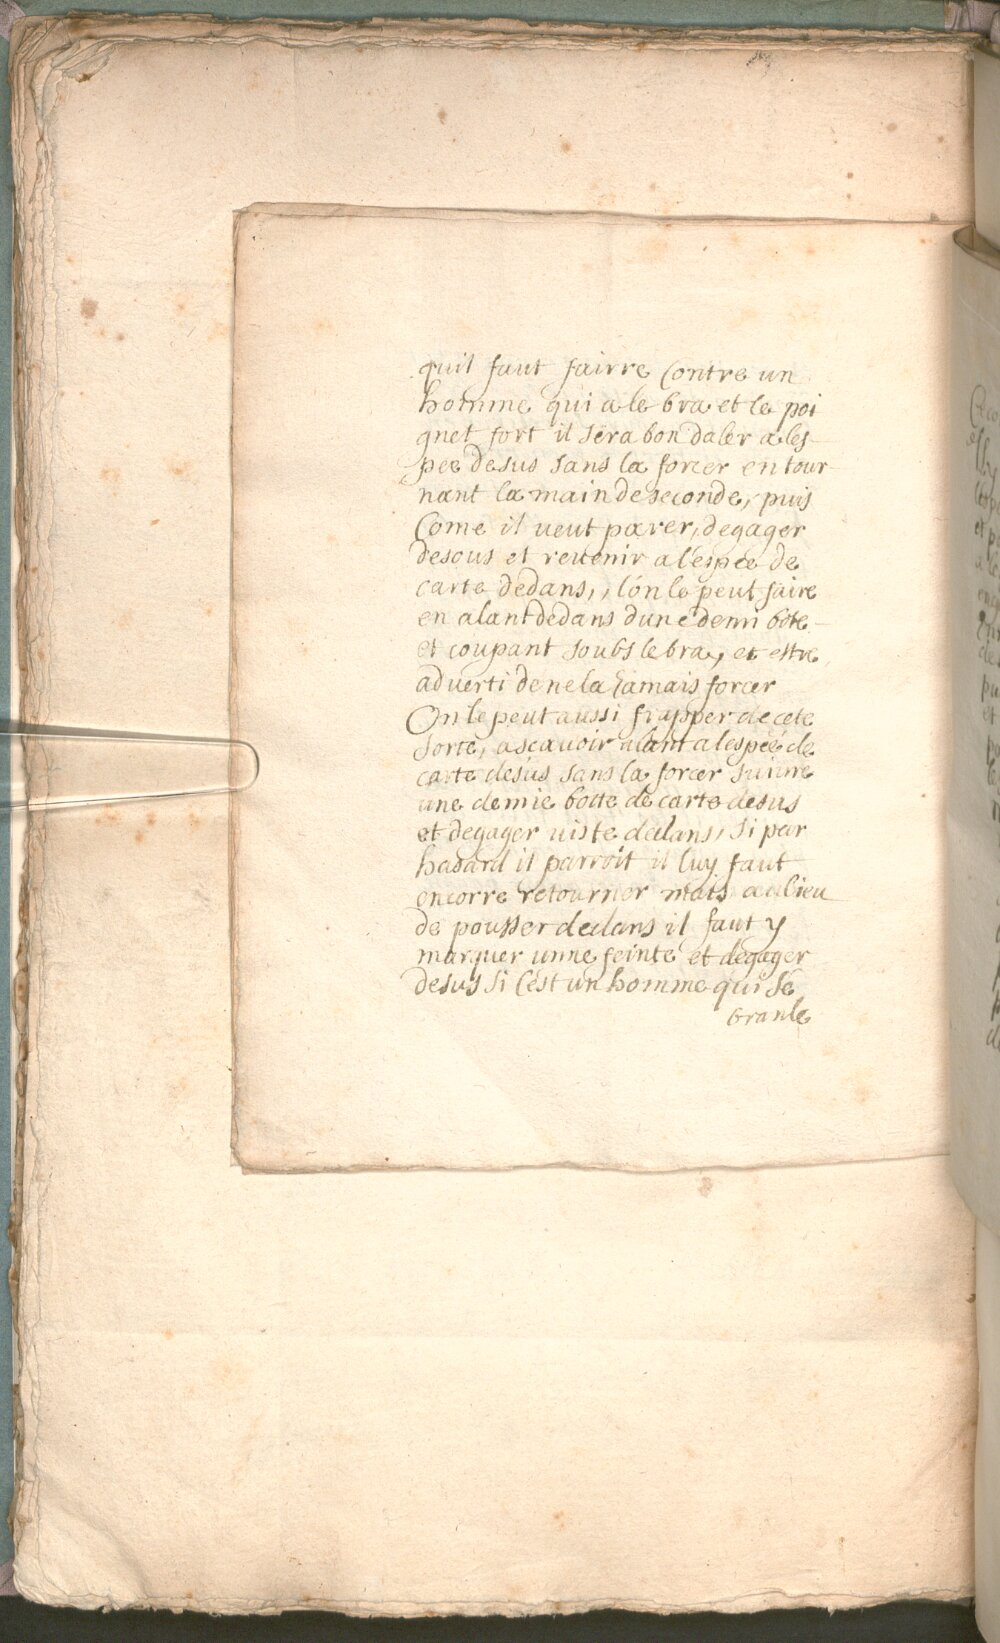 quil faut fairre Contre un
homme qui a le bra et le poi
gnet fort il sera bon daler a les-
pee desus sans la forcer en tour-
nant la main de seconde, puis
Come il veut parer, degager
desous et revenir a lespée de
carte dedans,, lón le peut faire
en alant dedans dune demi bote-
et coupant soubs le bra, et estre
adverti de ne la jamais forcer
On le peut aussi frapper de cete
sorte, ascavoir alant a lespée de
carte desus sans la forcer suivre
une demie botte de carte desus
et degager viste dedans, si par
hasard il parroit il luy faut
encorre retourner mais au lieu
de pousser dedans il faut y
marquer unne feinte et degager
desus si Cest un homme qui se
branle